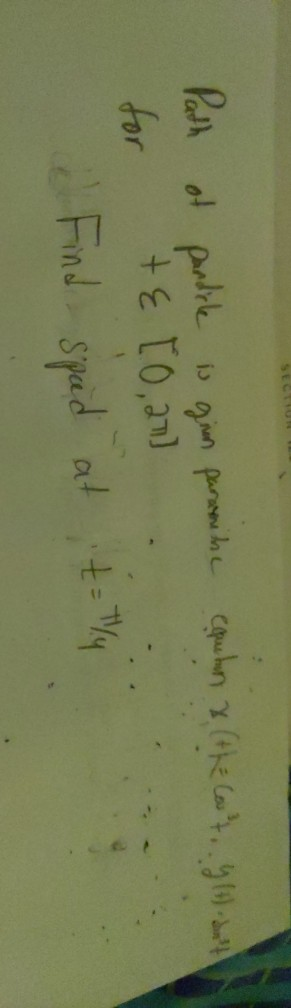 Path of particle is given parametric equation x(t)=cos³t, y(t)=sin³t
for t ε [0, 2π]
Find speed at t = π/4